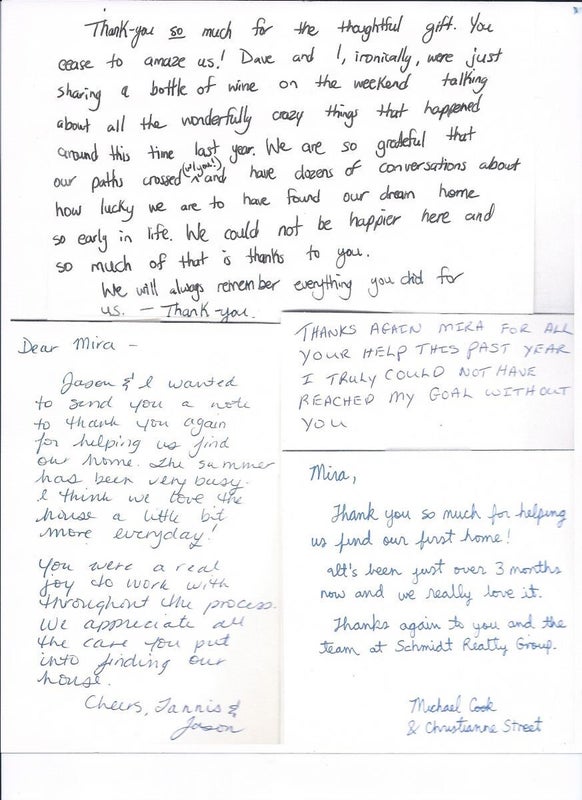 Thank-you so much for the thoughtful gift. You
cease to amaze us! Dave and I, ironically, were just
sharing a bottle of wine on the weekend talking
about all the wonderfully crazy things that happened
around this time last year. We are so grateful that
our paths crossed (w/you!) and have dozens of conversations about
how lucky we are to have found our dream home
so early in life. We could not be happier here and
so much of that is thanks to you.
We will always remember everything you did for
us. — Thank-you.
Dear Mira -
Jason & I wanted
to send you a note
to thank you again
for helping us find
our home. The summer
has been very busy.
I think we love the
house a little bit
more everyday!
You were a real
joy to work with
throughout the process.
We appreciate all
the care you put
into finding our
house.
Cheers, Tannis &
Jason
THANKS AGAIN MIRA FOR ALL
YOUR HELP THIS PAST YEAR
I TRULY COULD NOT HAVE
REACHED MY GOAL WITHOUT
YOU
Mira,
Thank you so much for helping
us find our first home!
It's been just over 3 months
now and we really love it.
Thanks again to you and the
team at Schmidt Realty Group.
Michael Cook
& Christianne Street